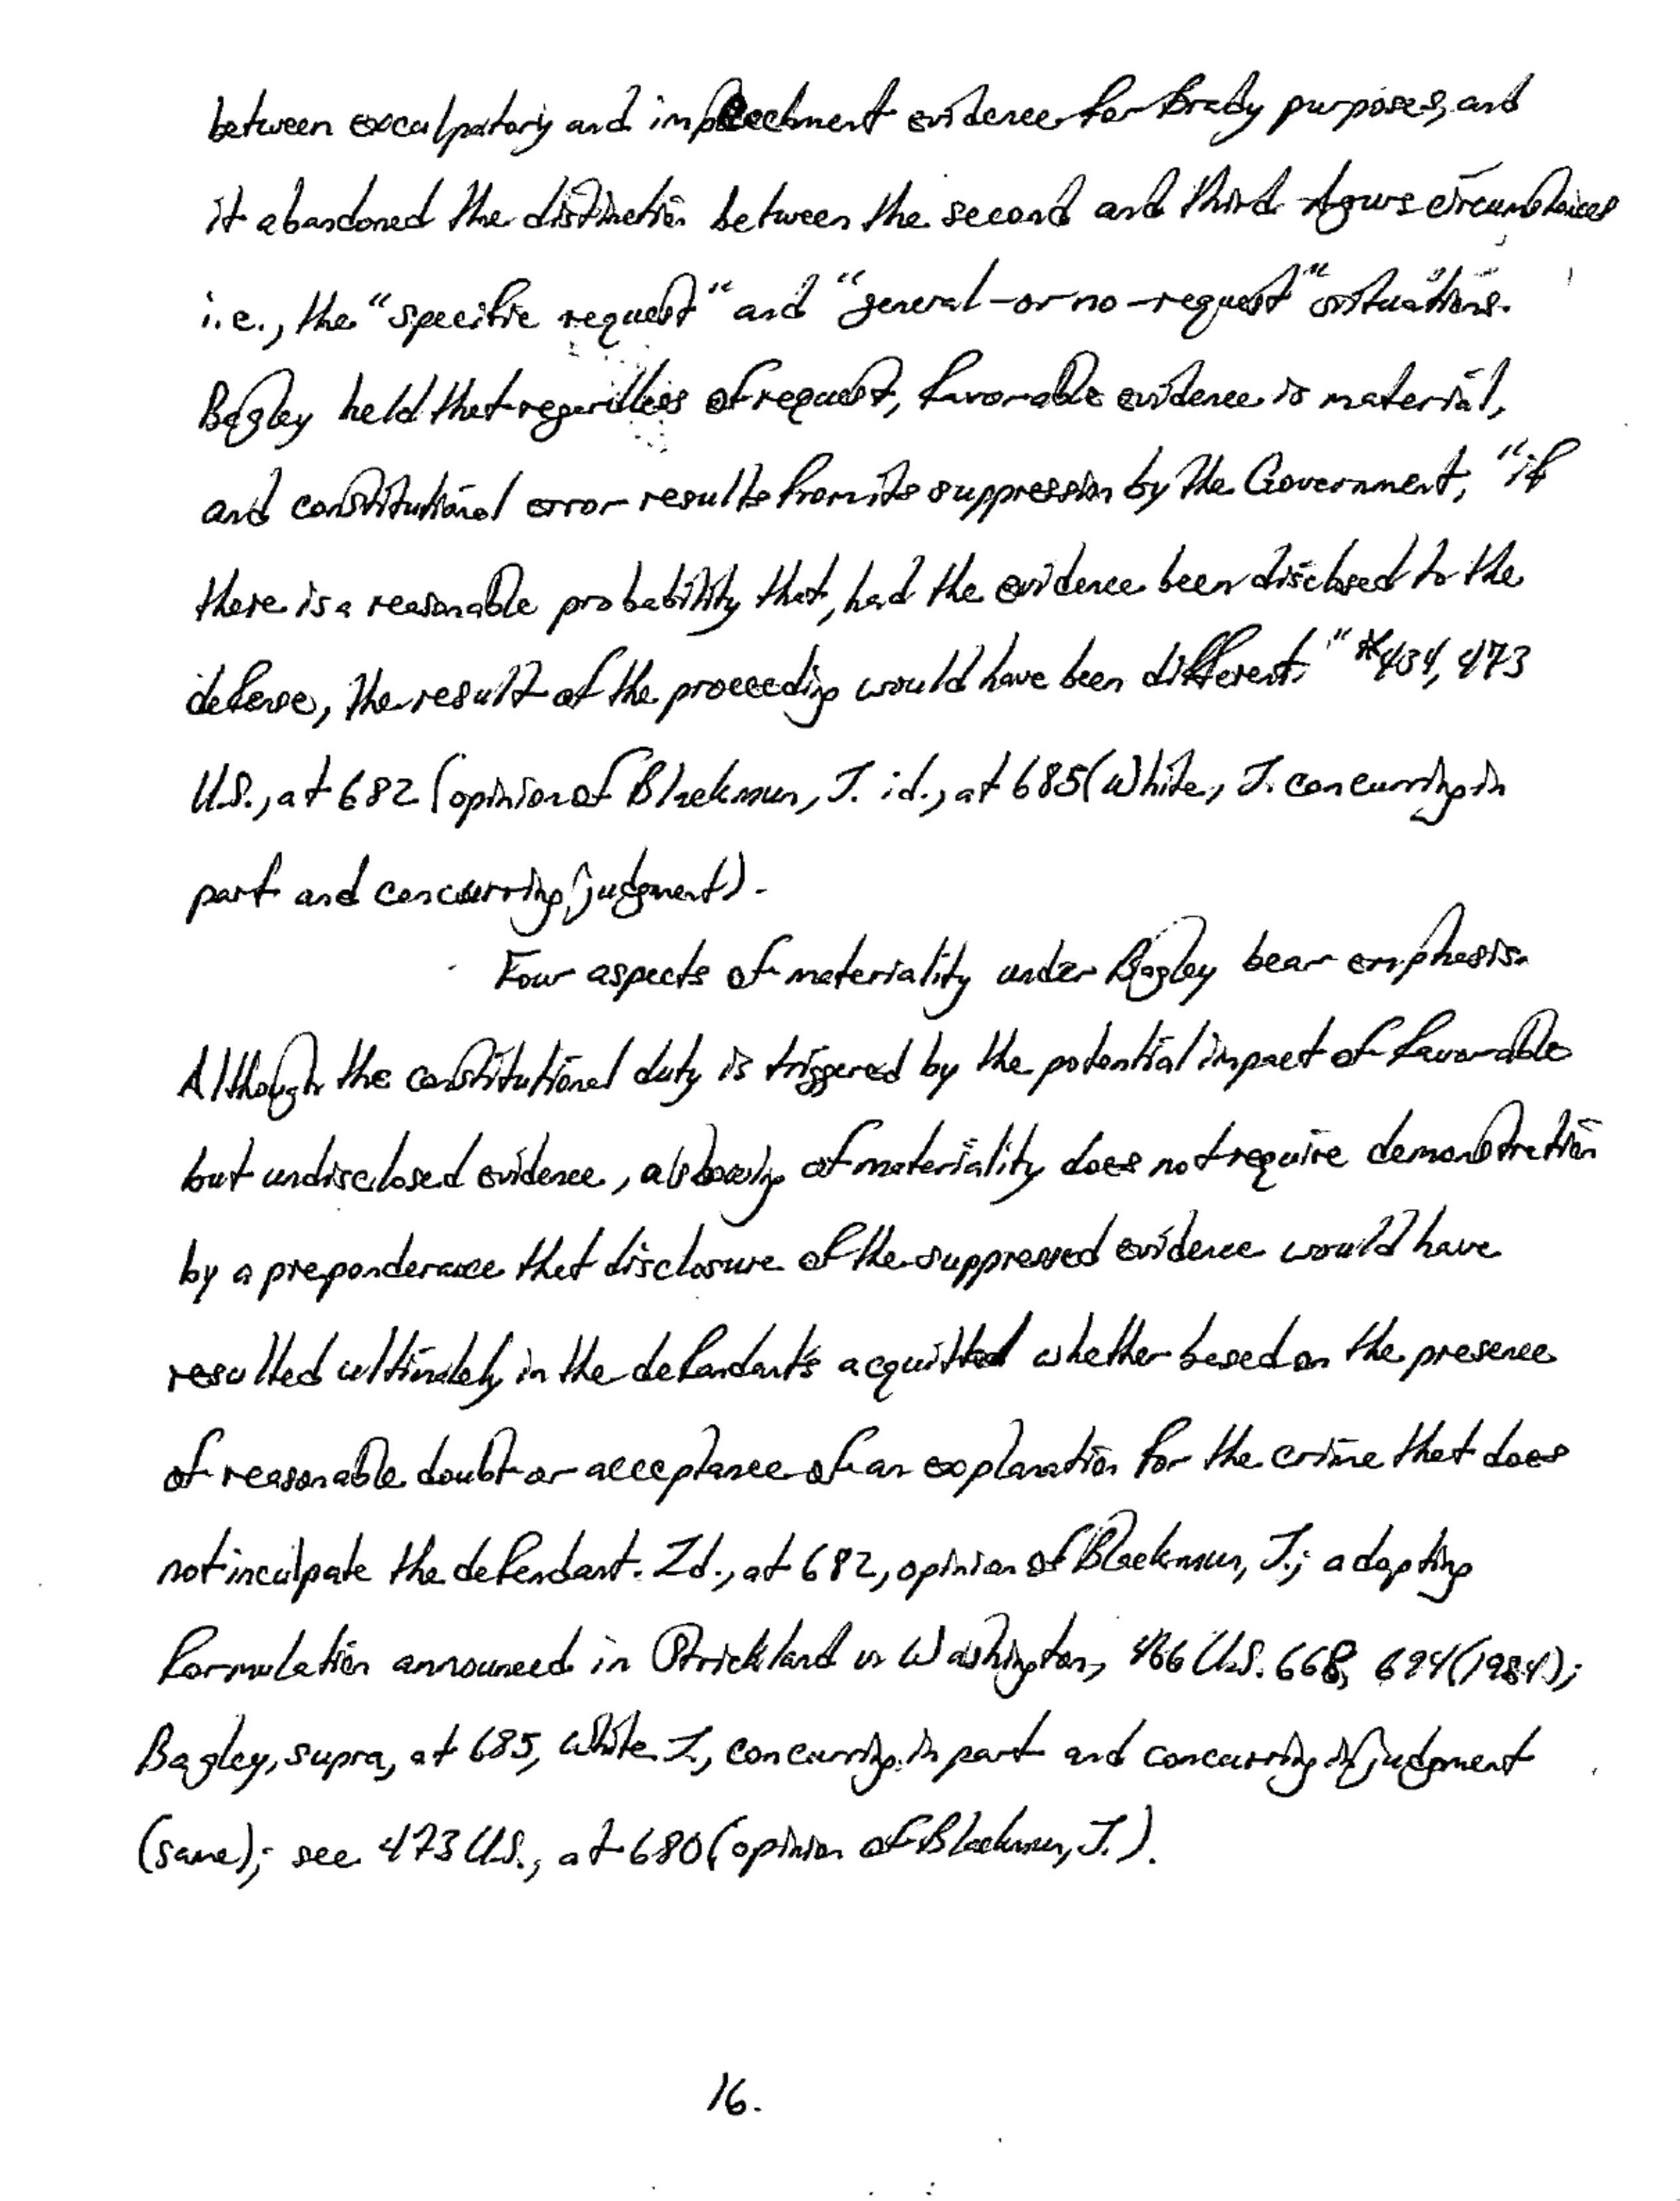 between exculpatory and impeachment evidence for Brady purposes, and
it abandoned the distinction between the second and third Agurs circumstances
i.e., the "specific request" and "general-or no-request" situations.
Bagley held that regardless of request, favorable evidence is material,
and constitutional error results from its suppression by the Government, "if
there is a reasonable probability that, had the evidence been disclosed to the
defense, the result of the proceeding would have been different." *434, 473
U.S., at 682 (opinion of Blackmun, J. id., at 685 (White, J. concurring in
part and concurring judgment).
Four aspects of materiality under Bagley bear emphasis.
Although the constitutional duty is triggered by the potential impact of favorable
but undisclosed evidence, a showing of materiality does not require demonstration
by a preponderance that disclosure of the suppressed evidence would have
resulted ultimately in the defendant's acquittal whether based on the presence
of reasonable doubt or acceptance of an explanation for the crime that does
not inculpate the defendant. Id., at 682, opinion of Blackmun, J.; adopting
formulation announced in Strickland v. Washington, 466 U.S. 668, 694 (1984);
Bagley, supra, at 685, White J., concurring in part and concurring in judgment
(same); see 473 U.S., at 680 (opinion of Blackmun, J.).
16.